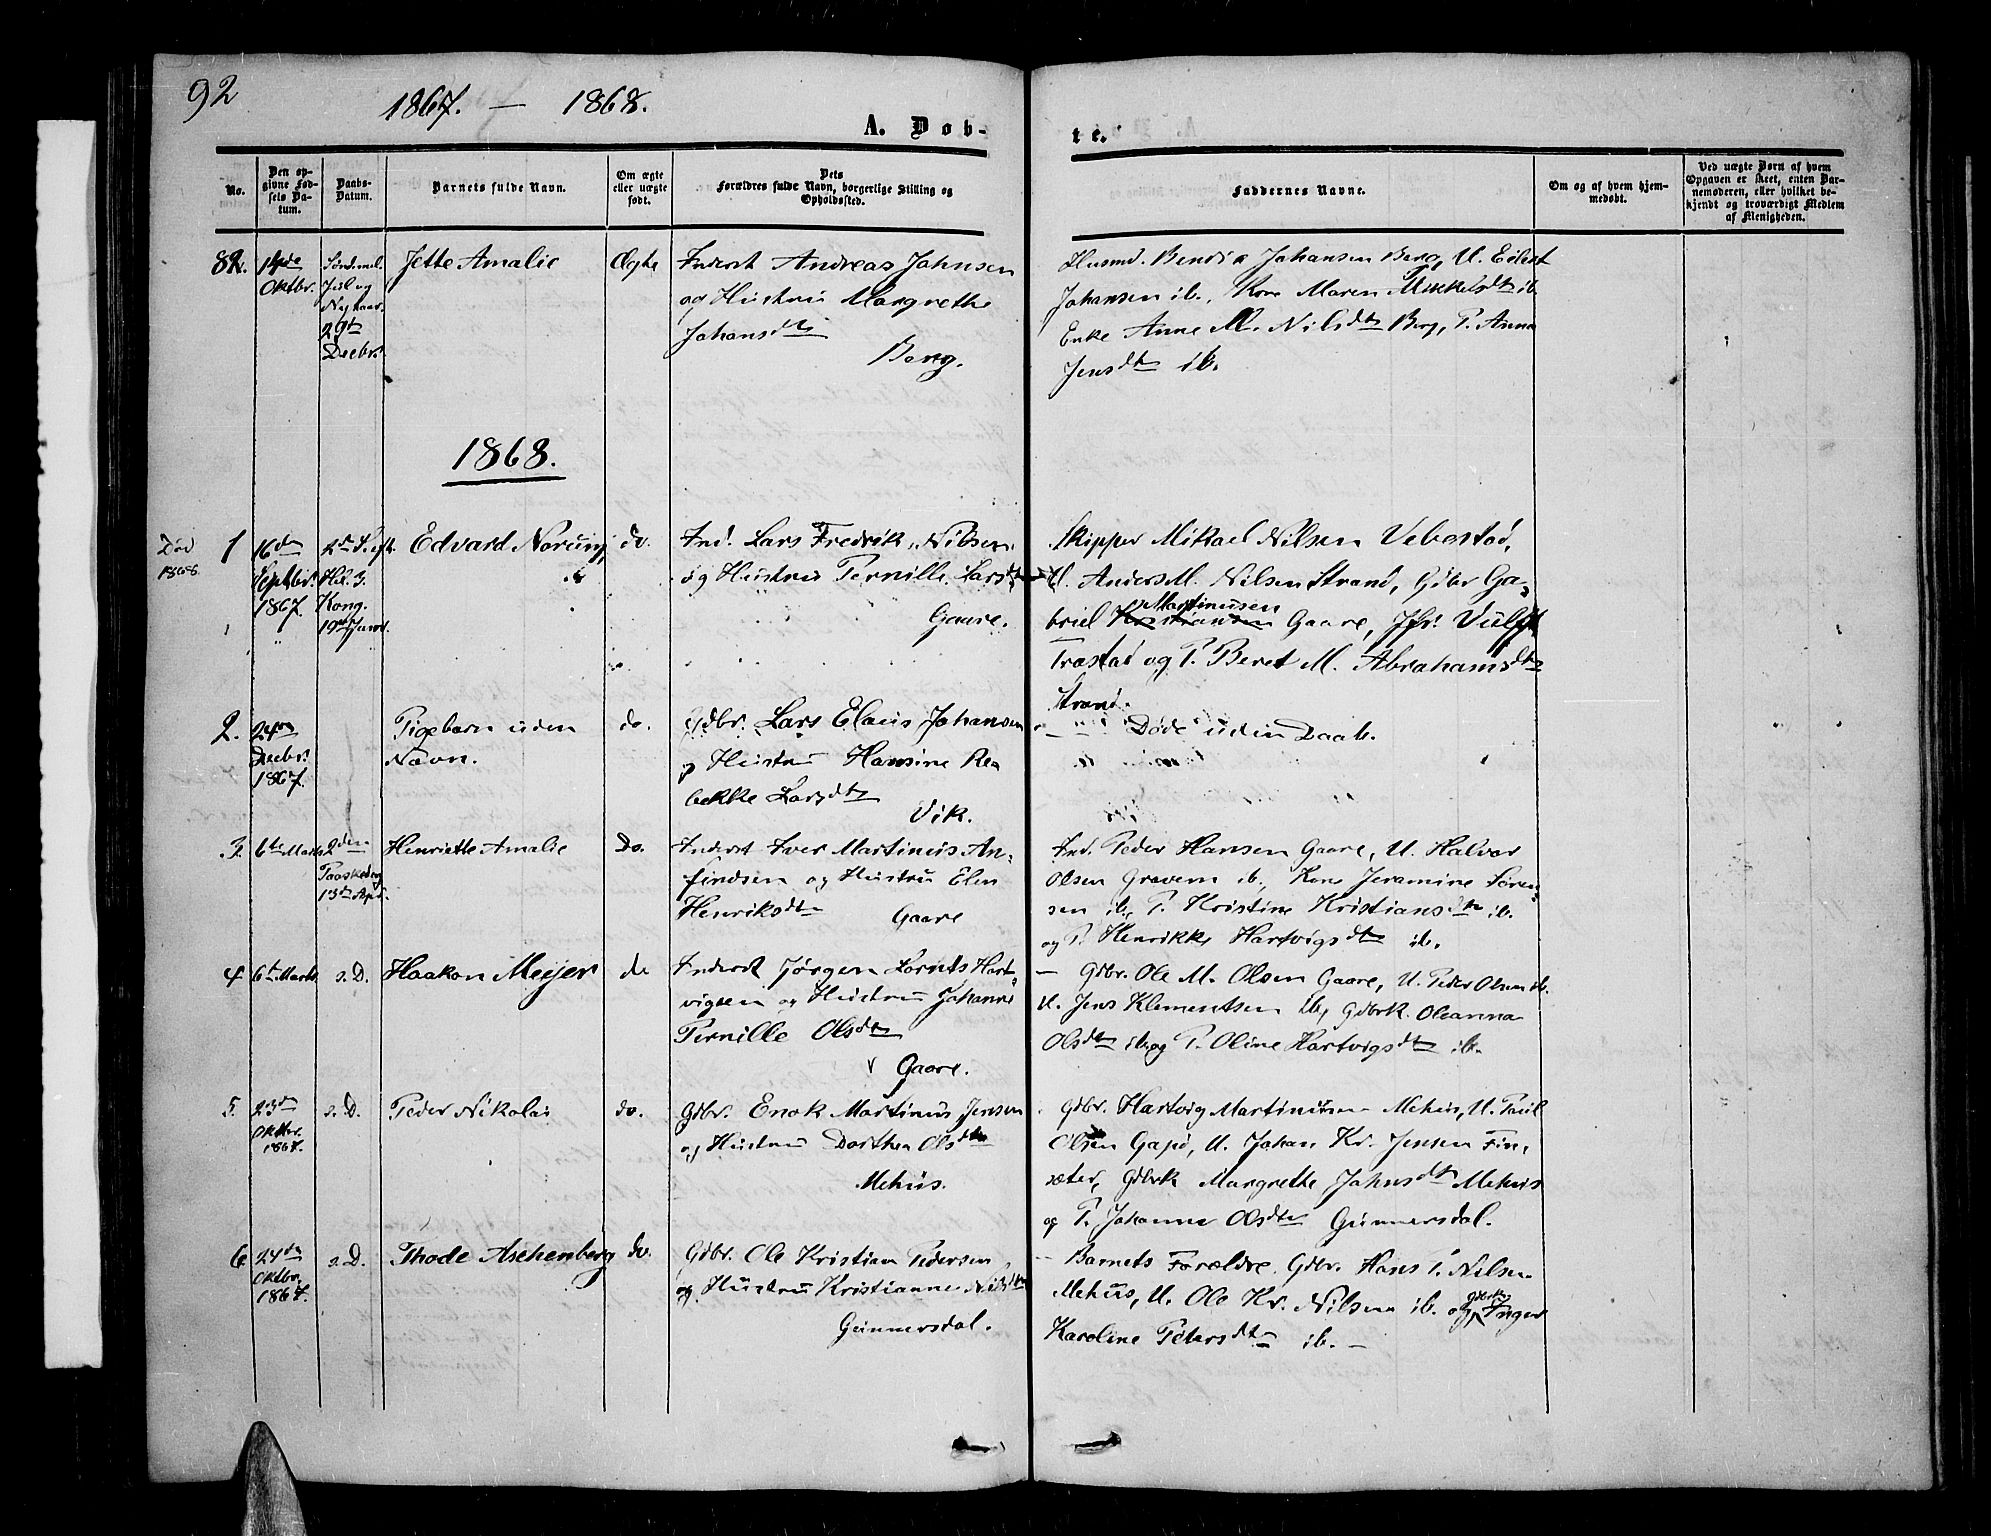 92
1867. — 1868.
A. Døb-
te.
No.
Den op-
givne Fød-
sels Da-
tum.
Daabs-
Datum.
Barnets fulde Navn.
Om ægte
eller uægte
født.
Dets
Forældres fulde Navn, borgerlige Stilling og
Opholdssted.
Faddernes Navne.
Om og af hvem hjem-
medøbt.
Ved uægte Børn af hvem
Opgaven er skeet, enten Bar-
nemoderen, eller hvilket be-
kjendt og troværdigt Medlem
af Menigheden.
82.
14de
Oktbr.
Sønd. mel.
Jul og
Nytaar.
29de
Decbr.
Jette Amalie
Ægte
Inderst Andreas Johnsen
og Hustru Margrethe
Johansdtr
Berg.
Husmd. Bendix Johansen Berg, U. Eilert
Johansen ib., Kone Maren Mikkelsdtr ib.
Enke Anne M. Nilsdtr Berg, P. Anna
Jensdtr ib.
1868.
Død
1868.
1
16de
Septbr.
1867.
2den S. eft.
Hel. 3.
Kong.
19de Janr.
Edvard Norum
do.
Ind. Lars Fredrik Nilsen
og Hustru Pernille Larsdtr
Gaare.
Skipper Mikael Nilsen Vebostad,
U. Anders M. Nilsen Strand, Gdbr Ga-
Martinusen
briel Kristiansen Gaare, Jfr. Vulff
Trastad og P. Beret M. Abrahamsdtr
Strand.
2.
24de
Decbr.
1867.
Pigebarn uden
Navn.
do.
Gdbr. Lars Elaus Johansen
og Hustru Hansine Re
bekke Larsdtr
Vik.
Døde uden Daab.
3.
6te Marts
2den
Paaskedag
13de Apr.
Henriette Amalie
do.
Inderst Iver Martinus An-
findsen og Hustru Elen
Henriksdtr
Gaare
Ind. Peder Hansen Gaare, U. Halvor
Olsen Gravem ib., Kone Jeramine Søren
sen ib. P. Kristine Kristiansdtr ib.
og P. Henrikke Hartvigsdtr ib.
4.
6te Marts
s. D.
Haakon Meijer
do
Inderst Jørgen Lornts Hart-
vigsen og Hustru Johanne
Pernille Olsdtr
Gaare.
— Gdbr. Ole M. Olsen Gaare, U. Peder Olsen ib.
U. Jens Klementsen ib., Gdbrk. Oleanna
Olsdtr ib. og P. Oline Hartvigsdtr ib.
5.
23de
Oktbr.
1867.
s. D.
Peder Nikolai
do.
Gdbr. Enok Martinus Jensen
og Hustru Dorthea Olsdtr
Mehus.
Gdbr. Hartvig Martinusen Mehus, U. Paul
Olsen Gapø, U. Johan Kr. Jensen Fin-
sæter, Gdbrk Margrethe Johnsdtr Mehus
og P. Johanna Olsdtr Gunnersdal.
6.
24de
Oktbr.
1867.
s. D.
Thode Aschenberg
do.
Gdbr. Ole Kristian Pedersen
og Hustru Kristianne Nilsdtr
Gunnersdal.
— Barnets Forældre, Gdbr. Hans P. Nilsen
Mehus, U. Ole Kr. Nilsen ib. og Gdbrk Inger
Karoline Petersdtr ib. —